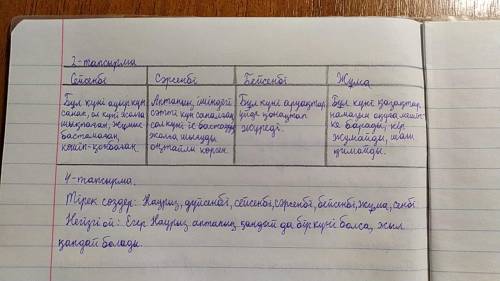 2-тапсырма
Сейсенбі Сәрсенбі Бейсенбі Жұма
Бұл күні ауыр күн
санап, ол күні жолға
шықпаған, жұмыс
бастамаған,
көшіп-қонбаған.
Аптаның ішіндегі
сәтті күн саналады,
сол күні іс бастауды
жолға шығуды
оңтайлы көрген.
Бұл күні аруақтар
үйді қонақтап
жүреді.
Бұл күні қазақтар,
намазын оқуға мешіт-
ке барады, кір
жумайды, шаш
қимайды.
4-тапсырма.
Тірек сөздер: Наурыз, дүйсенбі, сейсенбі, сәрсенбі, бейсенбі, жұма, сенбі.
Негізгі ой: Егер Наурыз аптаның қандай да бір күні болса, жыл
қандай болады.